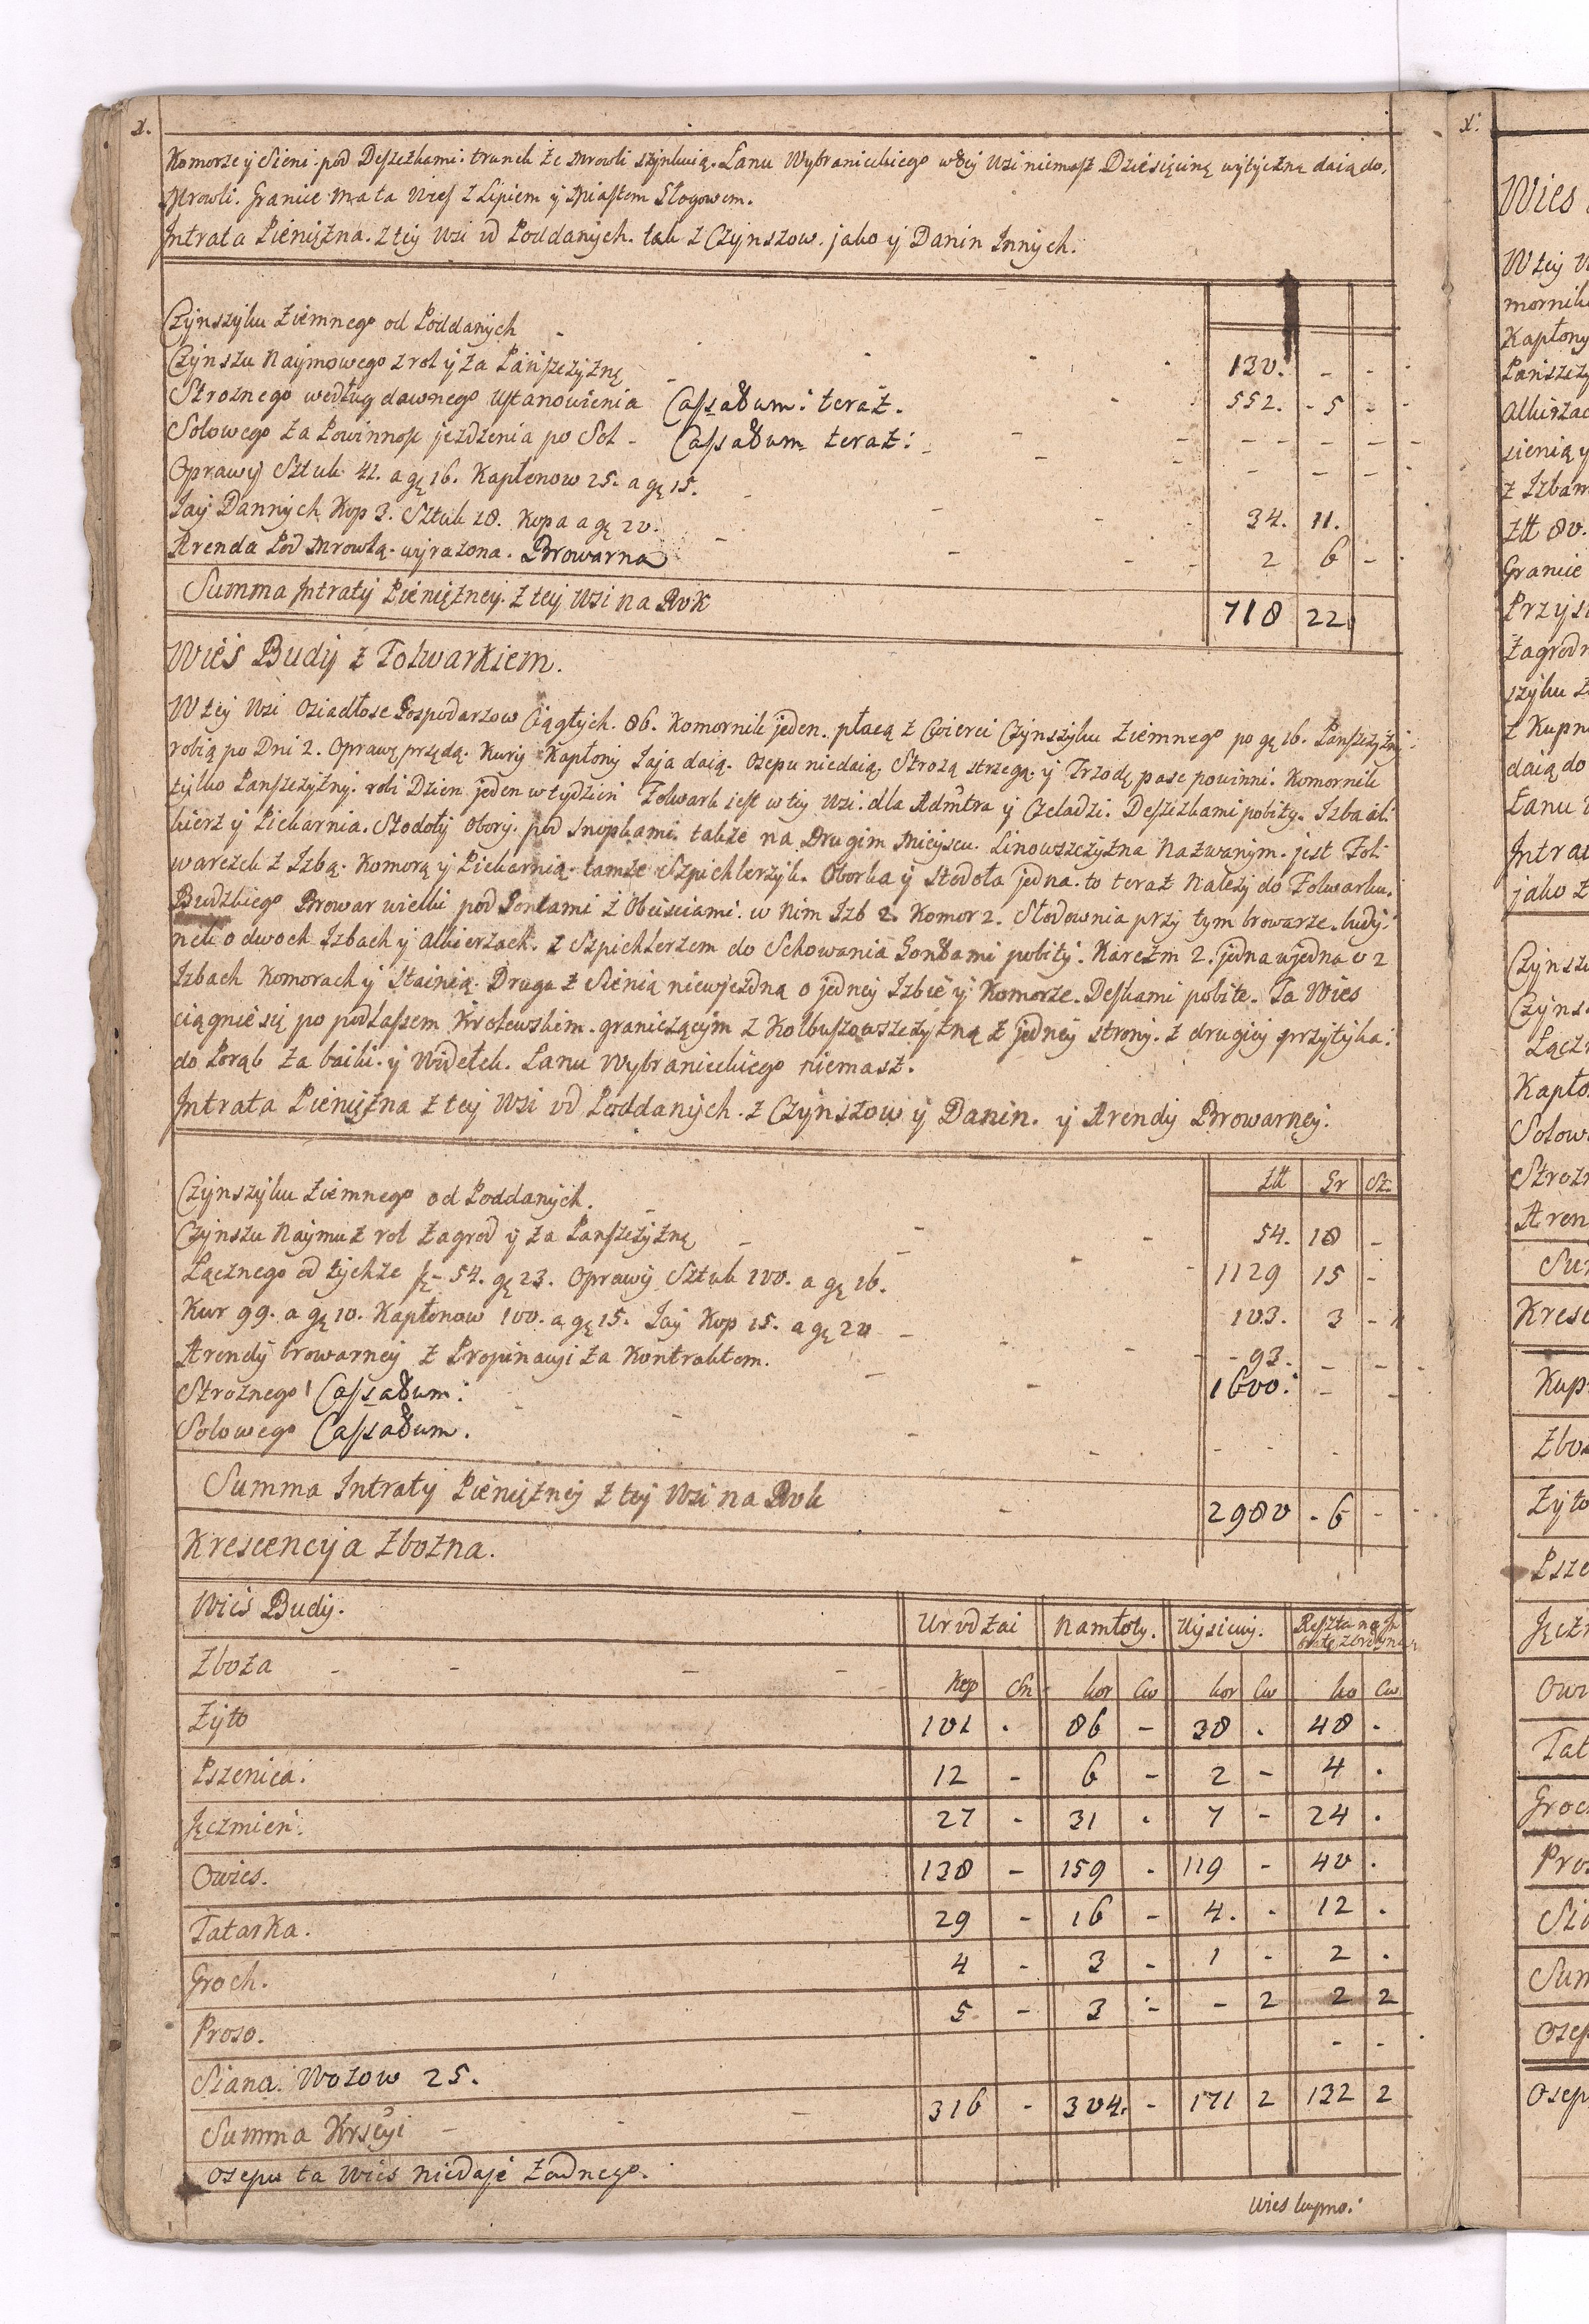 x.
Komorze y Sieni. pod Deszczkami. trunek ze Mrowli szynkuią. Łanu Wybranieckiego wtey Wsi niemasz Dziesięcinę wytyczną daią do
Mrowli. Granice Ma ta Wies z Lipiem y Miastem Głogowem.
Intrata Pieniężna. z tey Wsi od Poddanych. tak z Czynszow. jako y Danin Innych.
Czynszyku Ziemnego od Poddanych - 130. - -
Czynszu Naymowego z rol y za Pańszczyznę - 552. - 5 -
Stroznego według dawnego Ustanowienia Cassatum: teraz. - - - -
Solowego za Powinnosc jezdzenia po Sol - Cassatum teraz: - - -
Oprawy Sztuk 41. a gę 16. Kapłonow 25. a gę 15. - 34. 11.
Jay Dannych Kop 3. Sztuk 18. Kopa a gę 20. - 2 6 -
Arenda Pod Mrowlą. wyrazona. Browarna
Summa Intraty Pieniężney. z tey Wsi na Rok 718 22
Wieś Budy z Folwarkiem.
W tey Wsi Osiadłosc Gospodarzow Ciągłych. 86. Komornik jeden. płacą z Cwierci Czynszyku Ziemnego po gę 16. Panszczyzny
robią po Dni 2. Oprawę przędą. Kury Kapłony Jaja daią. Osepu niedaią, Strozą strzegą. y Trzodę pasc powinni. Komornik
tylko Panszczyzny. robi Dzien jeden w tydzień Folwark jest w tey Wsi. dla Admtra y Czeladzi. Deszczkami pobity. Izba al-
kierz y Piekarnia. Stodoły Obory. pod snopkami. takze na Drugim Mieyscu. Linowszczyzna Nazwanym. jest Fol-
warczek z Izbą. Komorą y Piekarnią. tamze Szpichlerzyk. Oborka y Stodoła jedna. to teraz Nalezy do Folwarku.
Budzkiego Browar wielki pod Gontami z Obeisciami. w Nim Izb 2. Komor 2. Słodownia przy tym browarze. budy-
nek o dwoch Izbach y Alkierzach. z Szpichlerzem do Schowania Gontami pobity. Karczm 2. jedna wjedna o 2
Izbach Komorach y Stainią. Druga z Sienią niewjezdną o jedney Izbie y Komorze. Deskami pobite. Ta Wies
ciągnie się po pod Lassem Krolewskim. graniczącym z Kolbuszowszczyzną z jedney strony. z drugiey przytyka:
do Porąb za baiki. y Widełek. Łanu Wybranieckiego niemasz.
Intrata Pieniężna z tey Wsi od Poddanych. z Czynszow y Danin. y Arendy Browarney.
Złł Gr Sz.
Czynszyku Ziemnego od Poddanych. - 54. 18 -
Czynszu Naymu z rol Zagrod y za Panszczyznę - 1129 15 -
Łącznego od tychze fę - 54. gę 23. Oprawy Sztuk 100. a gę 16. 103. 3 -
Kur 99. a gę 10. Kapłonow 100. a gę 15. Jay Kop 15. a gę 20 - - 93. - -
Arendy browarney z Propinacyi za Kontraktem. 1600. - -
Stroznego Cassatum:
Solowego Cassatum. - - -
Summa Intraty Pieniężney z tey Wsi na Rok - 2980 - 6 -
Krescencyja Zbozna.
Wieś Budy. Urodzai Namłoty. Wysiewy. Reszta na
Zboza - - - - Kop Sn kor Cw kor Cw ko Cw
Zyto 101 . 86 - 38 . 48 .
Pszenica. 12 - 6 - 2 - 4 .
Jęczmień. 27 - 31 . 7 - 24 .
Owies. 138 - 159 - 119 - 40 .
Tatarka. 29 - 16 - 4. . 12 .
Groch. 4 - 3 - 1 - 2 .
Proso. 5 - 3 - - 2 2 2
Siana. Wozow 25. - -
Summa Krscyi - - - 316 - 304. - 171 2 132 2
Osepu ta Wies niedaje zadnego.
Wies kupno.
x.
Wies
W tey W
mornik
Kapłony
Panszczy
Alkirzac
sienią y
z Izbam
złł 80.
Granice
Przysi
Zagrodn
szyku Z
z Kupn
daią do
Łanu W
Intrat
jako z
Czynszu
Czynsz
Łączn
Kapło
Solow
Strozn
Aren
Sum
Kresc
Kup
Zboz
Zyto
Psze
Jęczm
Owi
Tat
Groc
Pros
Sia
Sum
Osep
Osep